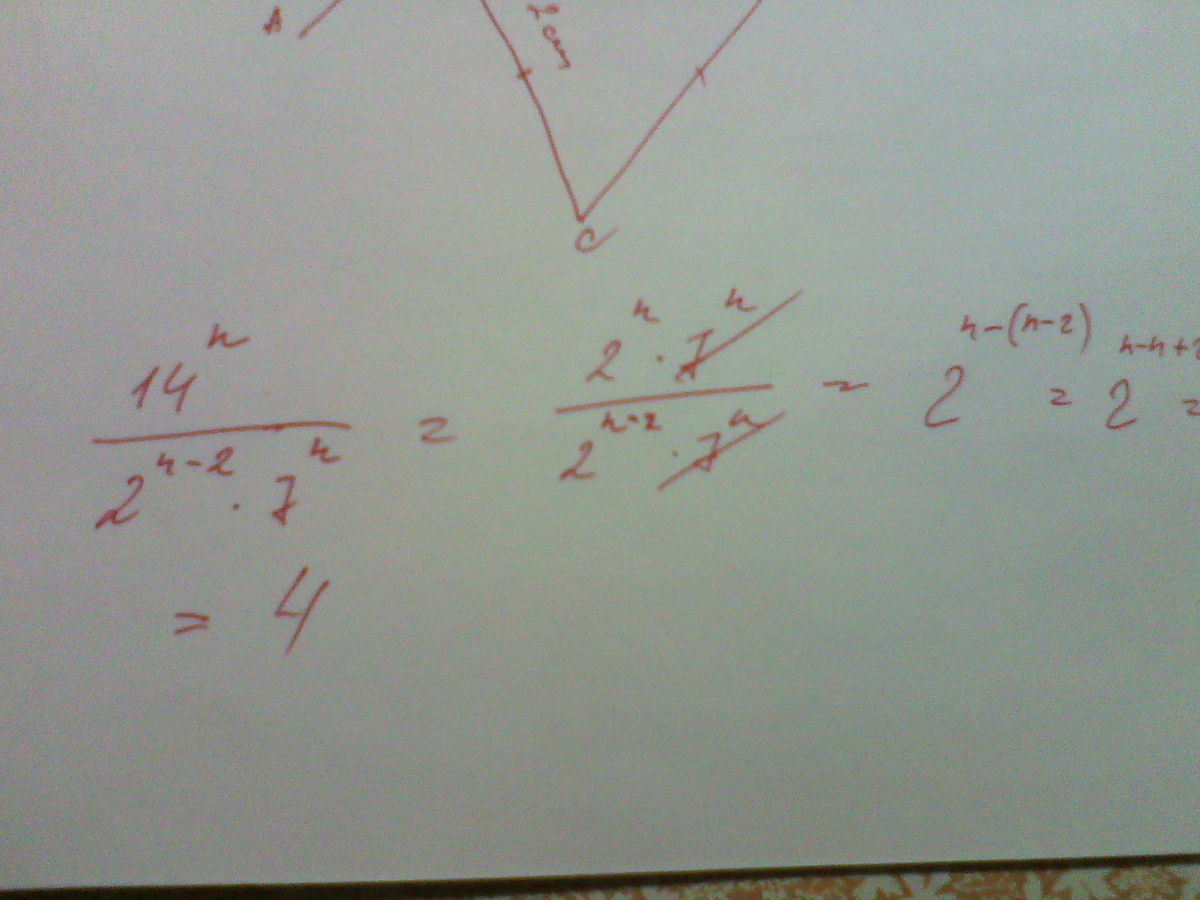 A
2cm
C
14^n / (2^(n-2) · 7^n) = (2^n · 7^n) / (2^(n-2) · 7^n) = 2^(n-(n-2)) = 2^(n-n+2) =
= 4